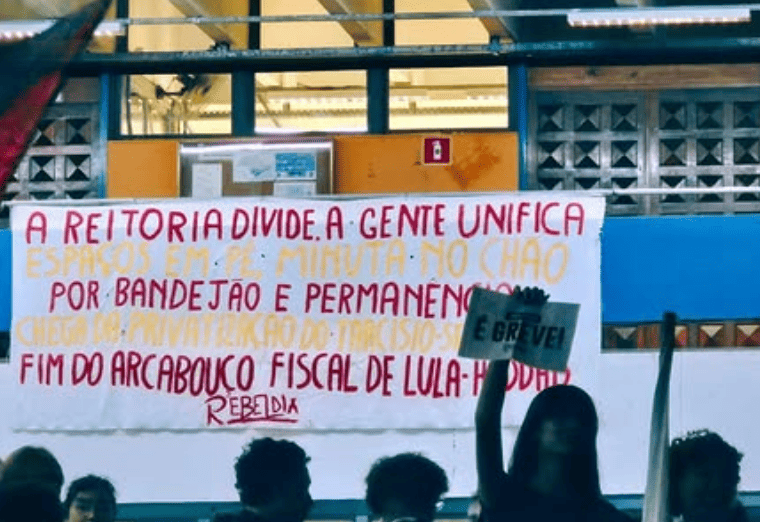 A REITORIA DIVIDE. A GENTE UNIFICA
ESPAÇOS EM PÉ, MINUTA NO CHÃO
POR BANDEJÃO E PERMANÊNCIA
CHEGA DA PRIVATIZAÇÃO DO TARCÍSIO-
É GREVE!
FIM DO ARCABOUÇO FISCAL DE LULA-HADDAD
REBELDIA